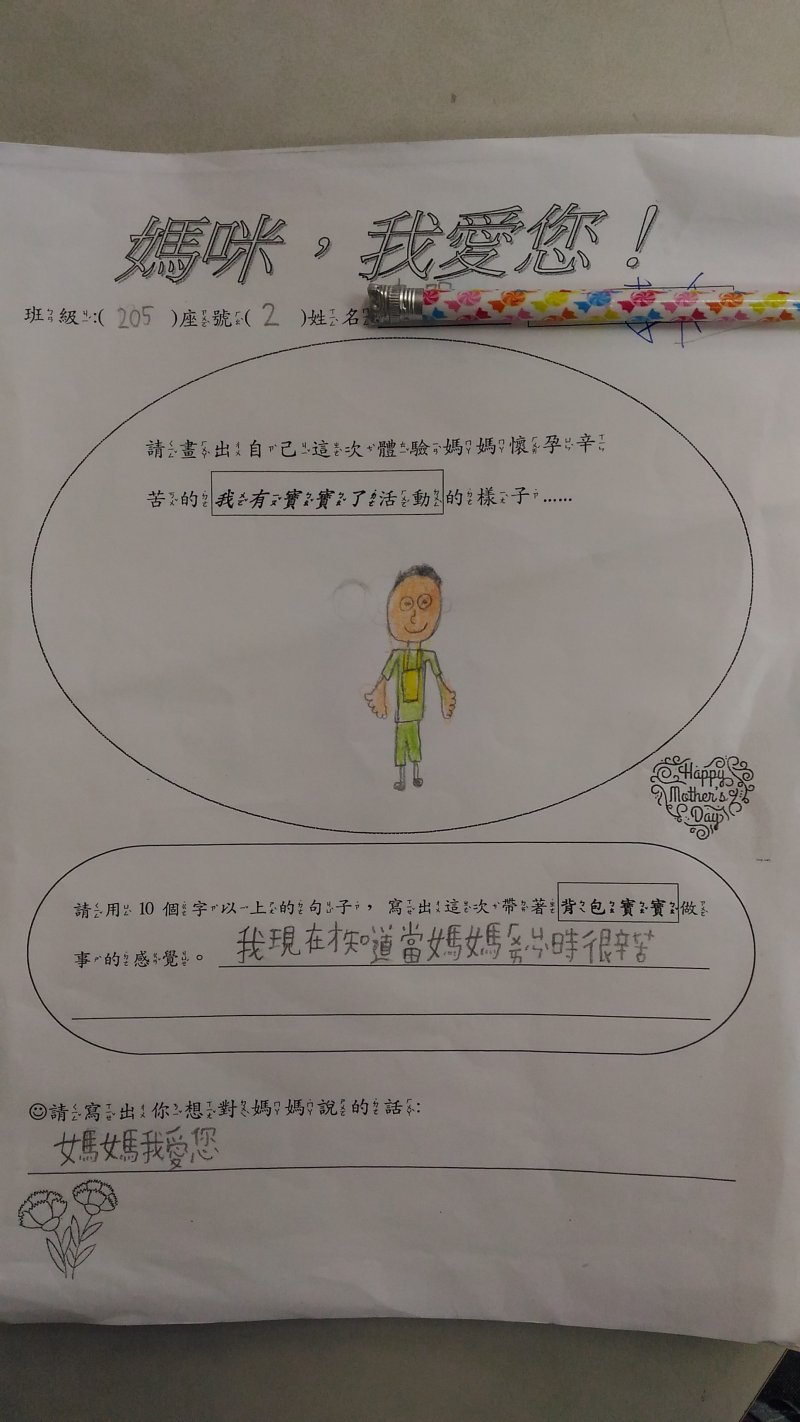 媽咪，我愛您！
班級:( 205 )座號( 2 )姓名
請畫出自己這次體驗媽媽懷孕辛
苦的我有寶寶了活動的樣子……
Happy
Mother's
Day
請用 10 個字以上的句子，寫出這次帶著背包寶寶做
事的感覺。我現在才知道當媽媽ㄏㄨㄞˊㄩㄣˋ時很辛苦
☺請寫出你想對媽媽說的話:
媽媽我愛您